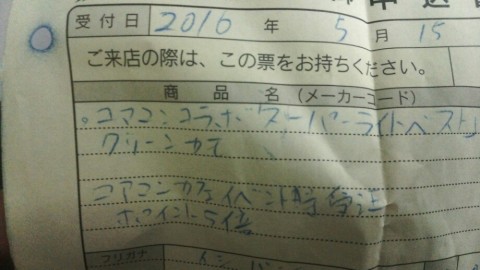 申込書
受付日 2016 年 5 月 15
ご来店の際は、この票をお持ちください。
商品名 (メーカーコード)
。コアマンコラボ「スーパーライトベスト」
グリーンカモ
コアマンカフェイベント時受注
ポイント5倍
フリガナ